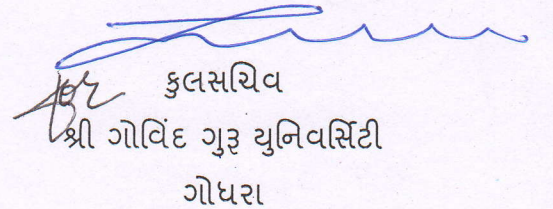 for
કુલસચિવ
શ્રી ગોવિંદ ગુરૂ યુનિવર્સિટી
ગોધરા